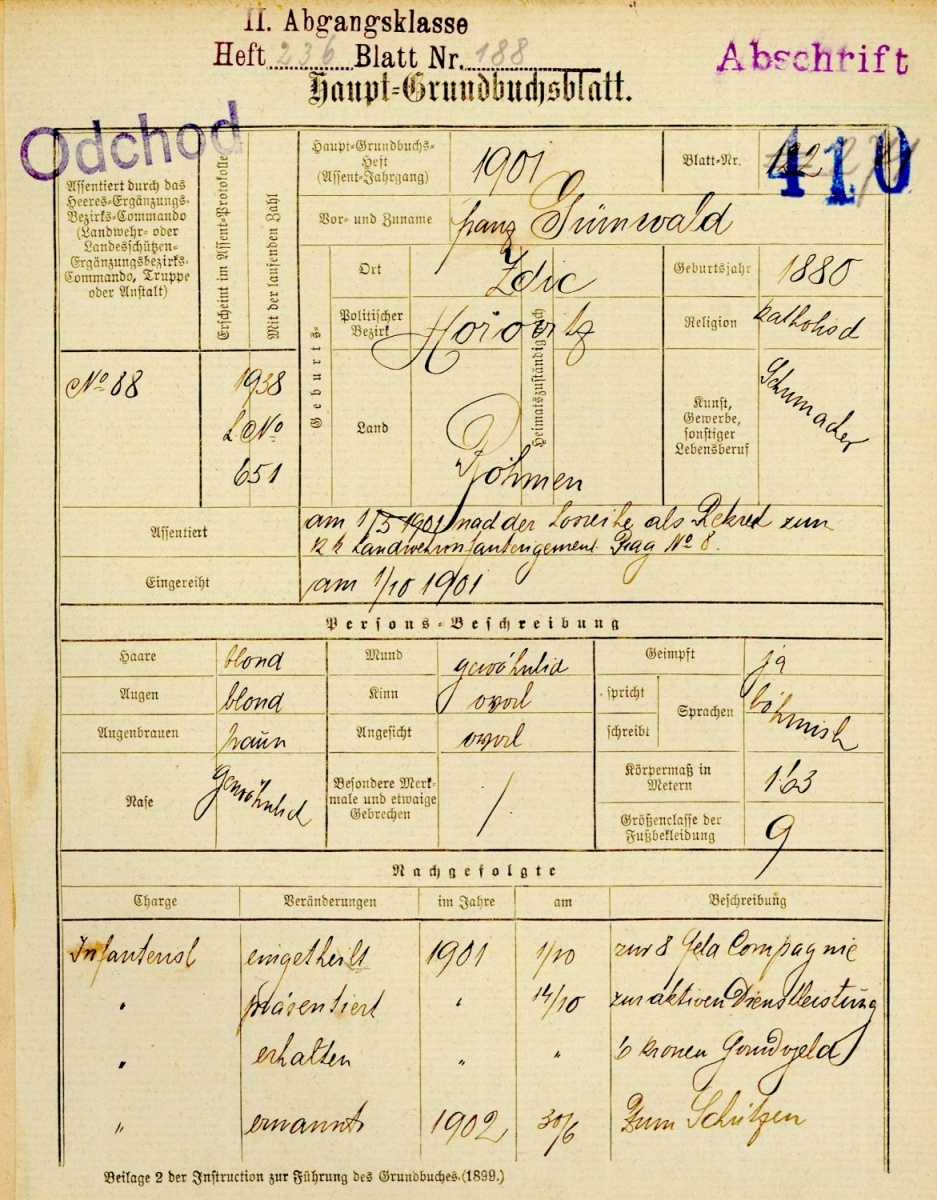 II. Abgangsklasse
Heft 236 Blatt Nr. 188
Abschrift
Haupt-Grundbuchsblatt.
Odchod
Assentiert durch das
Heeres-Ergänzungs-
Bezirks-Commando
(Landwehr- oder
Landesschützen-
Ergänzungsbezirks-
Commando, Truppe
oder Anstalt)
Erscheint im Assent-Protokolle
Mit der laufenden Zahl
Haupt-Grundbuchs-
Heft
(Assent-Jahrgang)
1901
Blatt-Nr.
122
410
Vor- und Zuname
franz Grünwald
Geburts-
Ort
Zdic
Geburtsjahr
1880
Politischer
Bezirk
Hořovitz
Heimatszuständig
Religion
katholisch
No 88
1938
L No
651
Land
Böhmen
Kunst,
Gewerbe,
sonstiger
Lebensberuf
Schumacher
Assentiert
am 1/5 1901 nach der Losreihe als Rekrut zum
k k Landwehrinfanterigement Prag No 8.
Eingereiht
am 1/10 1901
Persons-Beschreibung
Haare
blond
Mund
gewöhnlich
Geimpft
ja
Augen
blond
Kinn
oval
spricht
schreibt
Sprachen
böhmisch
Augenbrauen
braun
Angesicht
oval
Nase
gewöhnlich
Besondere Merk-
male und etwaige
Gebrechen
/
Körpermaß in
Metern
1·63
Größenclasse der
Fußbekleidung
9
Nachgefolgte
Charge Veränderungen im Jahre am Beschreibung
Infanterist eingetheilt 1901 1/10 zur 8 Feld Compagnie
" präsentiert " 14/10 zur aktiven Dienstleistung
" erhalten " " 6 Kronen
" ernannt 1902 30/6 Zum Schützen
Beilage 2 der Instruction zur Führung des Grundbuches.(1899.)